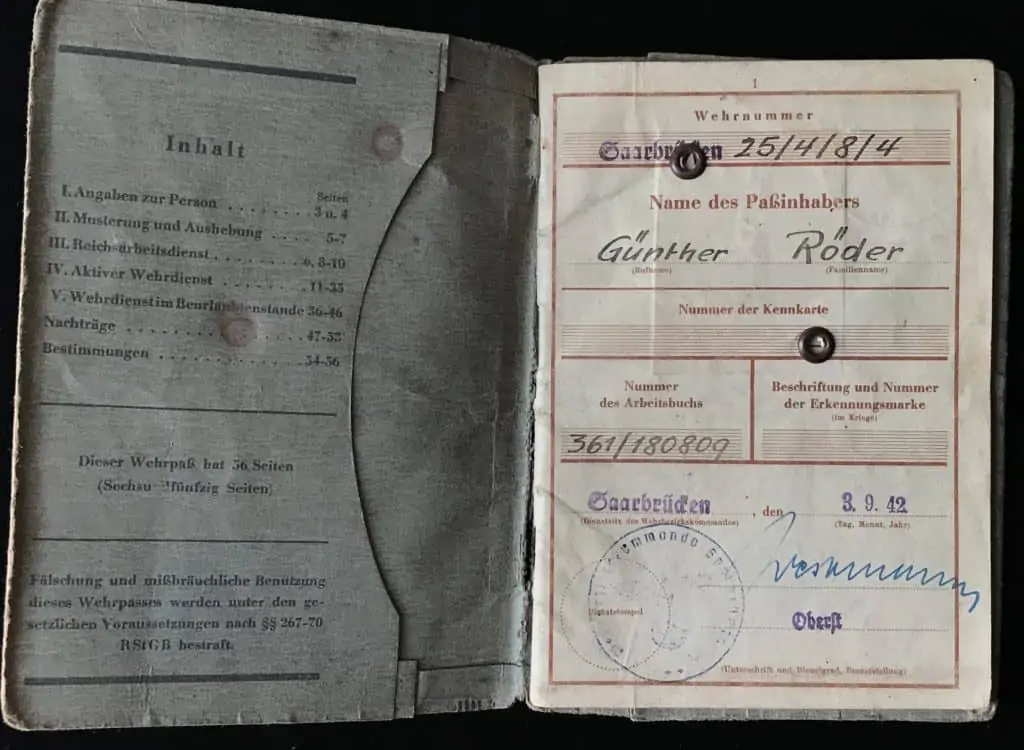 Inhalt
Seiten
I. Angaben zur Person . . . . . . . . 3 u. 4
II. Musterung und Aushebung . . . . 5-7
III. Reichsarbeitsdienst . . . . . . . . 6, 8-10
IV. Aktiver Wehrdienst . . . . . . . . 11-35
V. Wehrdienst im Beurlaubtenstande 36-46
Nachträge . . . . . . . . . . 47-53
Bestimmungen . . . . . . . . . . 54-56
Dieser Wehrpaß hat 56 Seiten
(Sechsundfünfzig Seiten)
Fälschung und mißbräuchliche Benutzung
dieses Wehrpasses werden unter den ge-
setzlichen Voraussetzungen nach §§ 267-70
RStGB bestraft.
1
Wehrnummer
Saarbrücken 25/4/8/4
Name des Paßinhabers
Günther Röder
(Rufname) (Familienname)
Nummer der Kennkarte
Nummer
des Arbeitsbuchs
361/180809
Beschriftung und Nummer
der Erkennungsmarke
(im Kriege)
Saarbrücken, den 3. 9. 42
(Dienstsitz des Wehrbezirkskommandos) (Tag, Monat, Jahr)
Dienststempel
Oberst
(Unterschrift und Dienstgrad, Dienststellung)